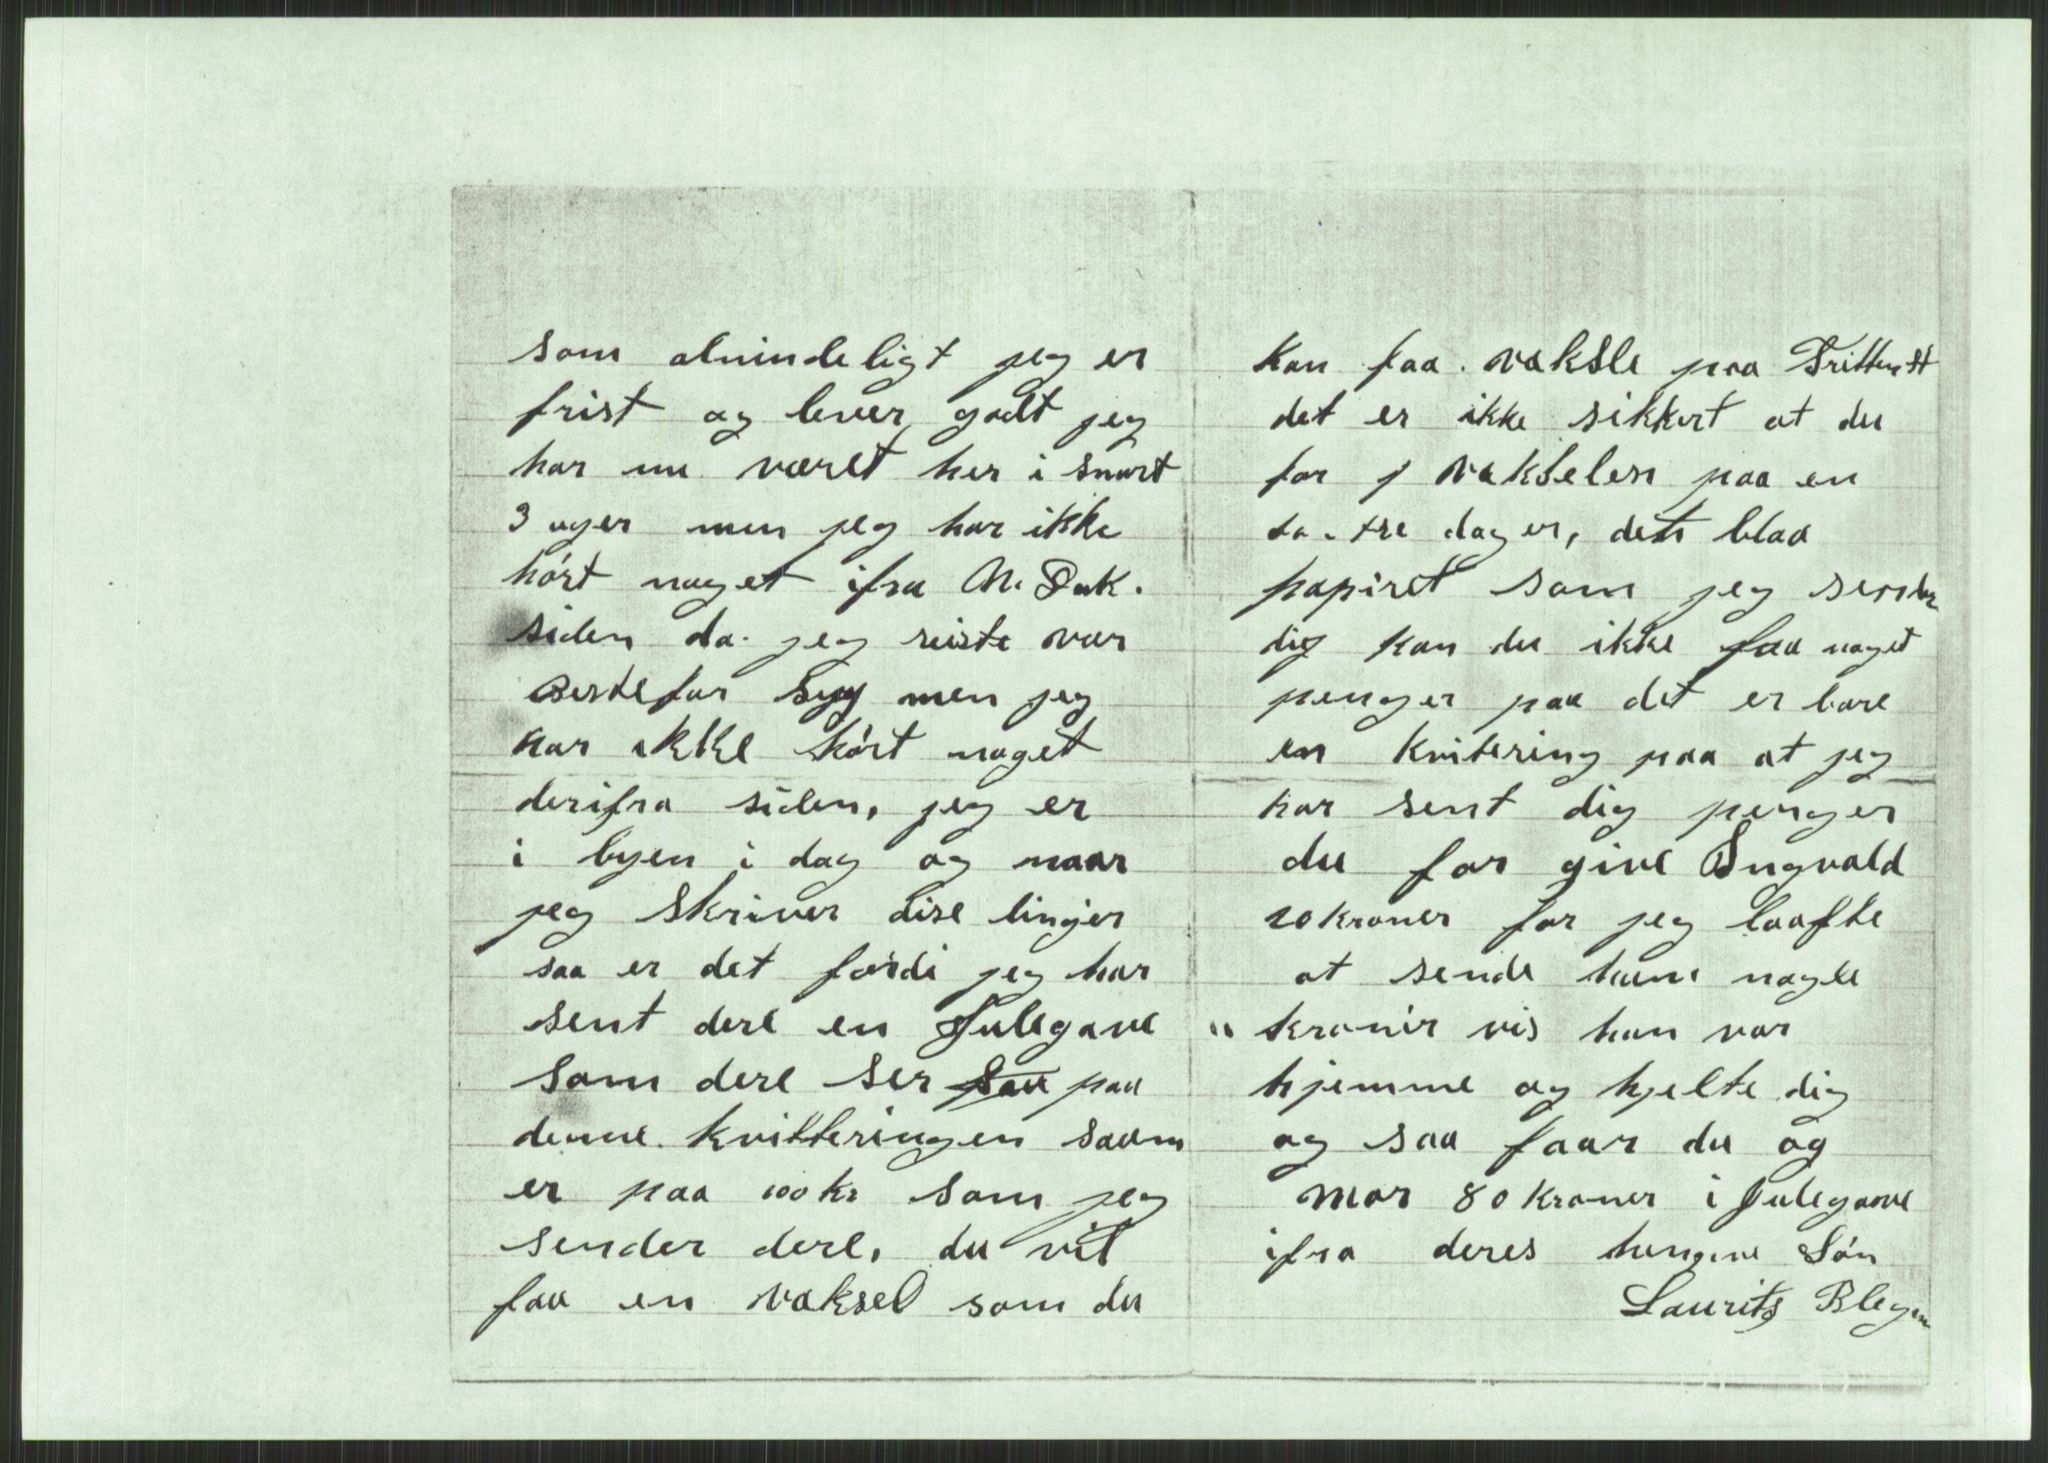 som almindeligt jeg er
frist og lever godt jeg
har nu været her i snart
3 uger men jeg har ikke
hørt noget ifra N. Dak.
siden da jeg reiste var
Bestefar Syg men jeg
har ikke hørt noget
derifra siden, jeg er
i byen i dag og naar
jeg skriver dise linjer
saa er det fordi jeg har
sent dere en Julegave
som dere ser paa
denne kvitteringen saam
er paa 100 kr som jeg
sender dere, du vil
faa en vaksel som du
kan faa vaksle paa
det er ikke sikkert at du
for vakselen paa en
to tre dager, dett blaa
papiret som jeg sender
dig kan du ikke faa noget
penger paa det er bare
en kvitering paa at jeg
har sent dig penger
du for give Ingvald
20 kroner for jeg laafte
at sende ham nogle
" kroner vis han var
hjemme og hjelte dig
og saa faar du og
mor 80 kroner i Julegave
ifra deres hengivne Søn
Laurits Blegen